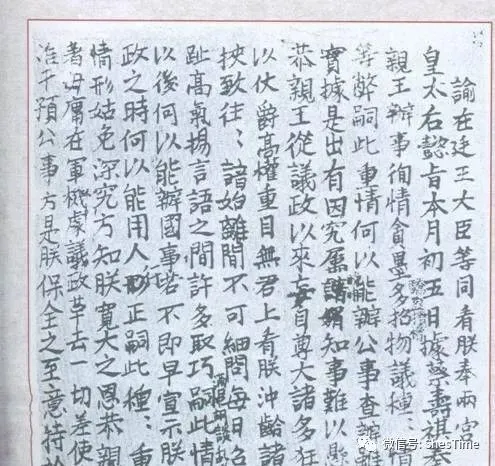 諭在廷王大臣等同看朕奉兩宮
皇太后懿旨本月初五日據蔡壽祺奏
親王辦事徇情貪墨多招物議種:情
等弊嗣此重情何以能辦公事查辦雖
實據是出有因究屬知事難以懸
恭親王從議政以來妄自尊大諸多狂
以仗爵高權重目無君上看朕沖齡諸
挾致往:諳始離間不可細問每日召
趾高氣揚言語之間許多取巧嗣此情
以後何以能辦國事若不即早宣示朕
政之時何以能用人行正嗣此種:重
情形姑免深究方知朕寬大之恩恭親
著毋庸在軍機處議政革去一切差使
准干預公事方是朕保全之至意特諭
微信号: ShesTime